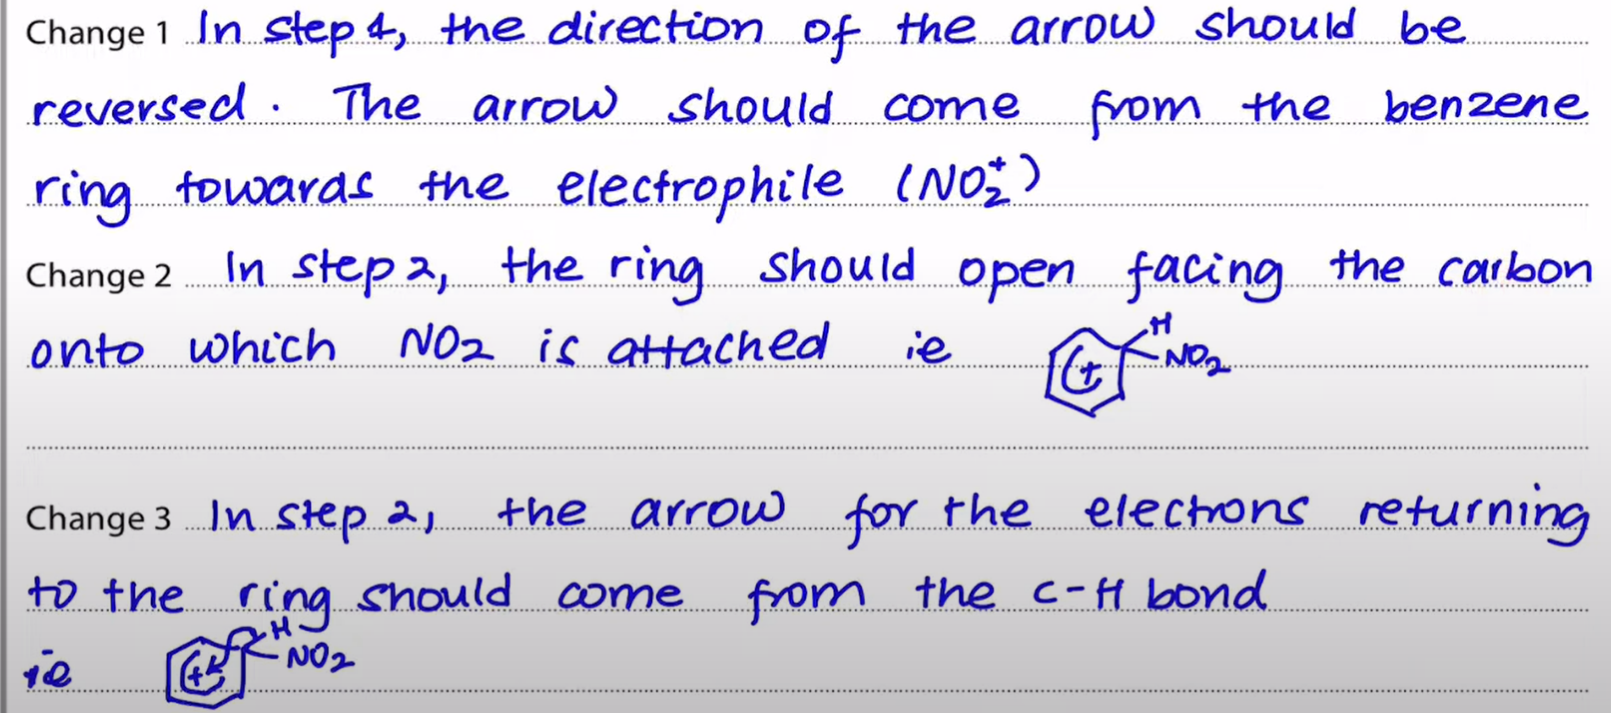 Change 1 In step 1, the direction of the arrow should be
reversed. The arrow should come from the benzene
ring towards the electrophile (NO₂⁺)
Change 2 In step 2, the ring should open facing the carbon
onto which NO2 is attached ie
H
+ NO2
Change 3 In step 2, the arrow for the electrons returning
to the ring should come from the C-H bond
H
ie + NO2